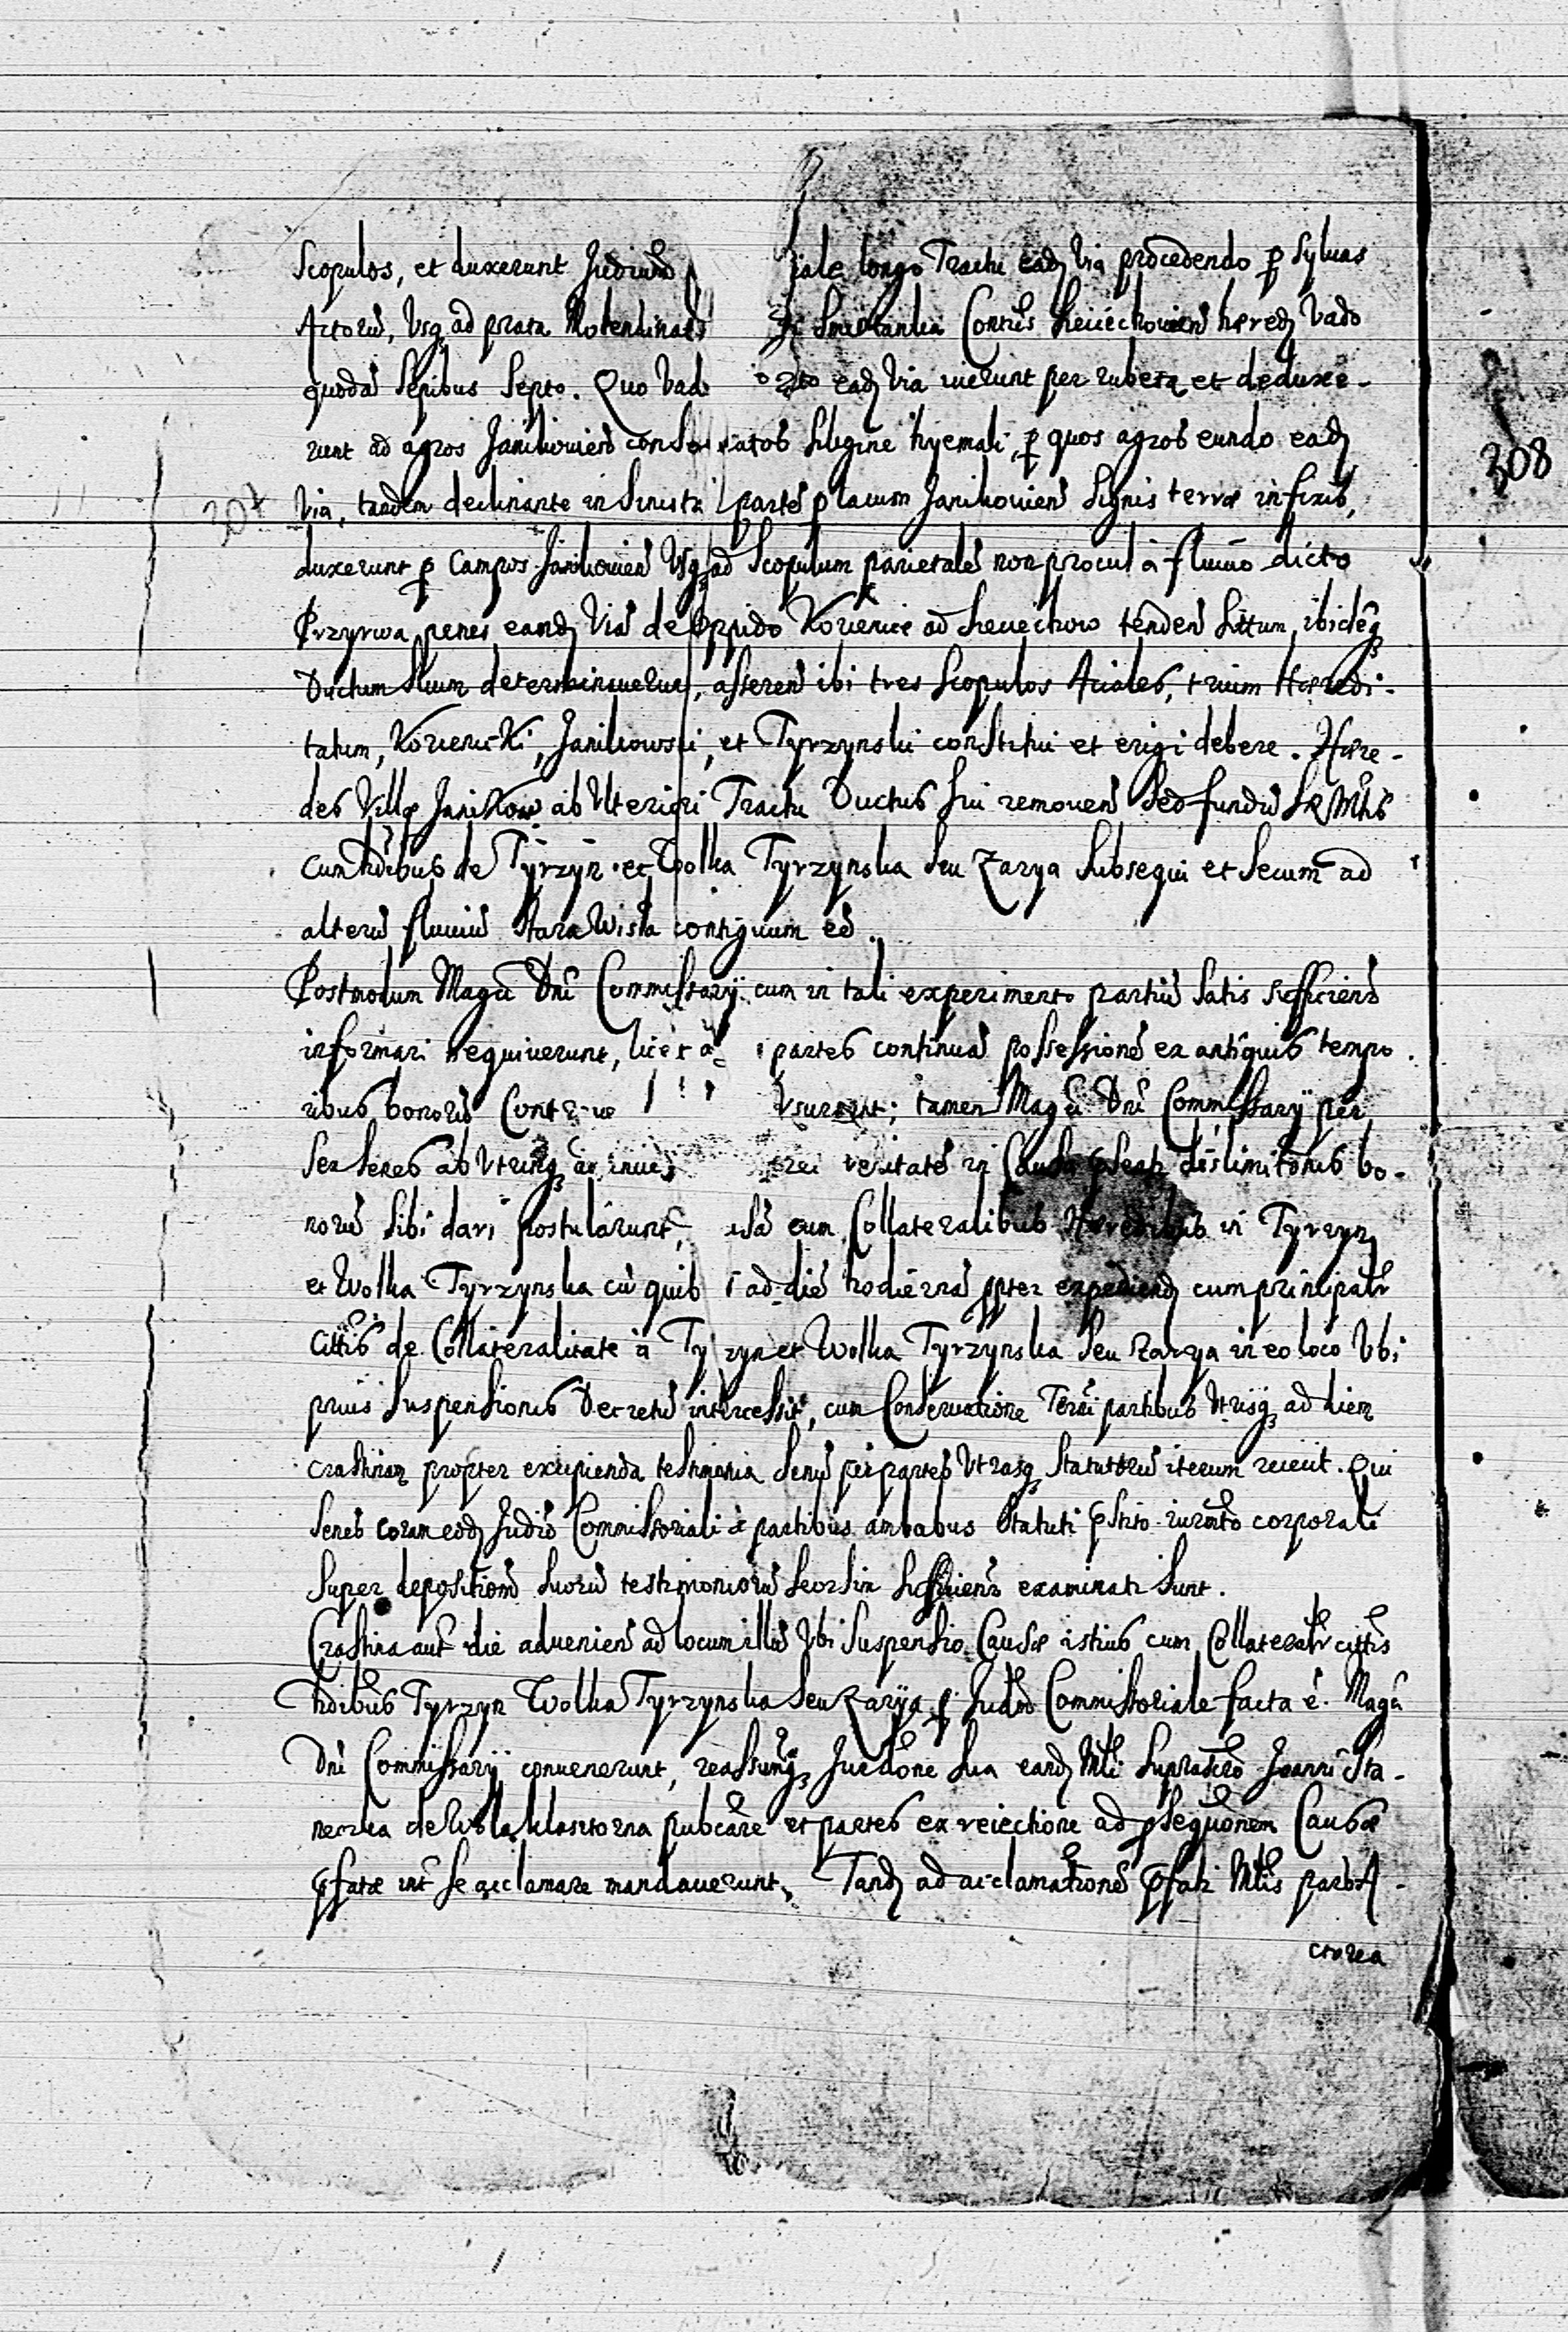 Scopulos, et duxerunt Judiciũ iale longo Tractu eadȝ Via procedendo ꝑ Syluas
Actorũ, Usqȝ ad prata Contr̃s Sieciechouien̄ hæredȝ Vado
quodã Sepibus Septo. Quo Vado eadȝ Via iuerunt per rubeta et deduxe-
runt ad agros Janikouien̄ conseruatos Siligine hyemali, ꝑ quos agros eundo eadȝ
307 Via, tandem declinante in Sinistrã partẽ ꝑ lacum Janikouien̄ Signis terræ infixis, 308
duxerunt ꝑ Campos Janikouien̄ Usqȝ ad Scopulum parietalẽ non procul à fluuio dicto
Przyrwa penes eandȝ Viã de Oppido Kozienice ad Sieciechow tenden̄ Situm, ibideqȝ
Ductum Suum determinauerunt, asseren̄ ibi tres Scopulos Aciales, trium Hæredi-
tatum, Kozienicki, Janikowski, et Tyrzynski constitui et erigi debere. Hære-
des Villæ Janikow ab Ulteriori Tractu Ductus Sui remouen̄ Sed fundũ S R Mtis
cum hdibus de Tyrzyn et Wolka Tyrzynska Seu Zarya Subsequi et Secum ad
alterũ fluuiũ Stara Wisla contiguum eẽ.
Postmodum Magci Dñi Commissarÿ cum in tali experimento partiũ Satis Sufficien̄
informari nequiuerunt, licet à partes continuã possessionẽ ex antiquis tempo
ribus bonorũ tamen Magci Dñi Commissarÿ per
Sex Senes ab Utrinqȝ veritatẽ in Causa p̄sent̃ dislimitõnis bo-
norũ Sibi dari postularunt, cum Collateralibus Hæredibus in Tyrzyn
et Wolka Tyrzynska cũ quib ad diẽ hodiernã ꝓpter expediendȝ cum principalr̃
cittis de Collateralitate à Tyrzyn et Wolka Tyrzynska Seu Zarya in eo loco Ubi
prius Suspensionis Decretũ intercessit, cum Conseruatione Termi partibus Utrisqȝ ad diem
crastinam propter excipienda testimonia Senũ per partes Utrasqȝ Statutorũ iterum reiecit. Qui
Senes coram eodȝ Judio Commissoriali à partibus ambabus Statuti p̄stito iuramto corporali
Super depositionẽ Suorũ testimoniorũ Seorsim Sufficienr̃ examinati Sunt.
Crastina aut̃ die aduenien̄ ad locum illũ Ubi Suspensio Causæ istius cum Collateralr̃ cittis
hdibus Tyrzyn Wolka Tyrzynska Seu Zarÿa ꝑ Judm Commissoriale facta ẽ. Magci
Dñi Commissarÿ conuenerunt, reassumqȝ Jurdone Sua eandȝ Mli Suprascro Joanni Sta-
necka de Wola Klasztorna pubcare et partes ex reiectione ad ꝓsequonem Causæ
p̄fatæ int̃ Se acclamare mandauerunt. Tandȝ ad acclamationẽ p̄fati Mlis parte A-
ctorea